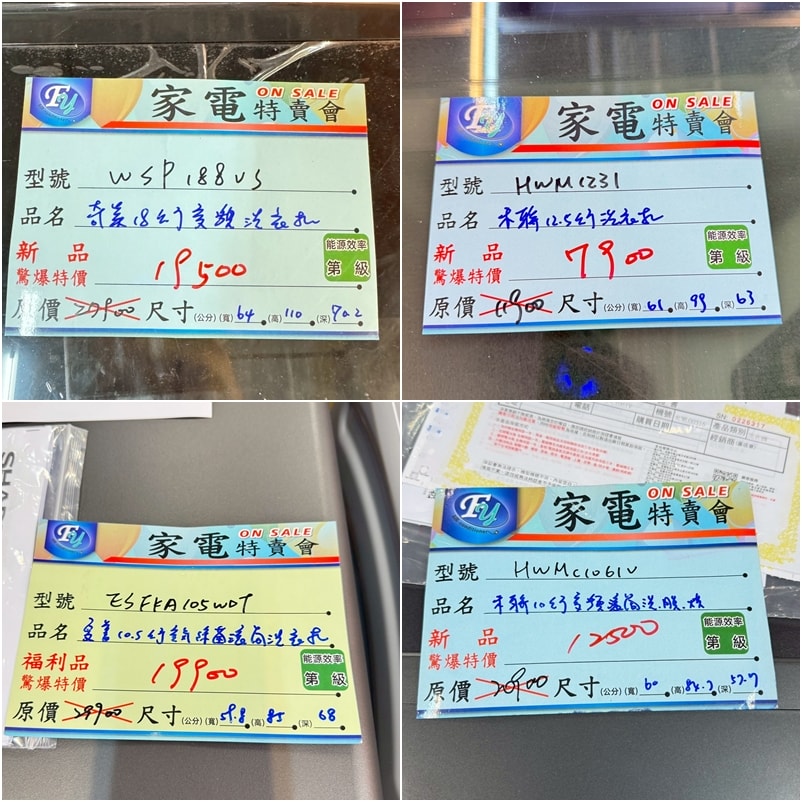 Fy 家電特賣會 ON SALE
型號 WSP188VS
品名 奇美18公斤變頻洗衣機
新品
驚爆特價 19500
能源效率 第 級
原價 29900 尺寸(公分)(寬)64(高)110(深)702
Fy 家電特賣會 ON SALE
型號 HWM1231
品名 禾聯12.5公斤洗衣機
新品
驚爆特價 7900
能源效率 第 級
原價 11900 尺寸(公分)(寬)61(高)99(深)63
SHA
Fy 家電特賣會 ON SALE
型號 ESFKA105WDT
品名 夏普10.5公斤 除菌滾筒洗衣機
福利品
驚爆特價 19900
能源效率 第 級
原價 29900 尺寸(公分)(寬)59.8(高)85(深)68
購買日期
產品類別
經銷商
Fy 家電特賣會 ON SALE
型號 HWMC1061V
品名 禾聯10公斤變頻滾筒洗.脫.烘
新品
驚爆特價 12500
能源效率 第 級
原價 20900 尺寸(公分)(寬)60(高)84.7(深)57.7